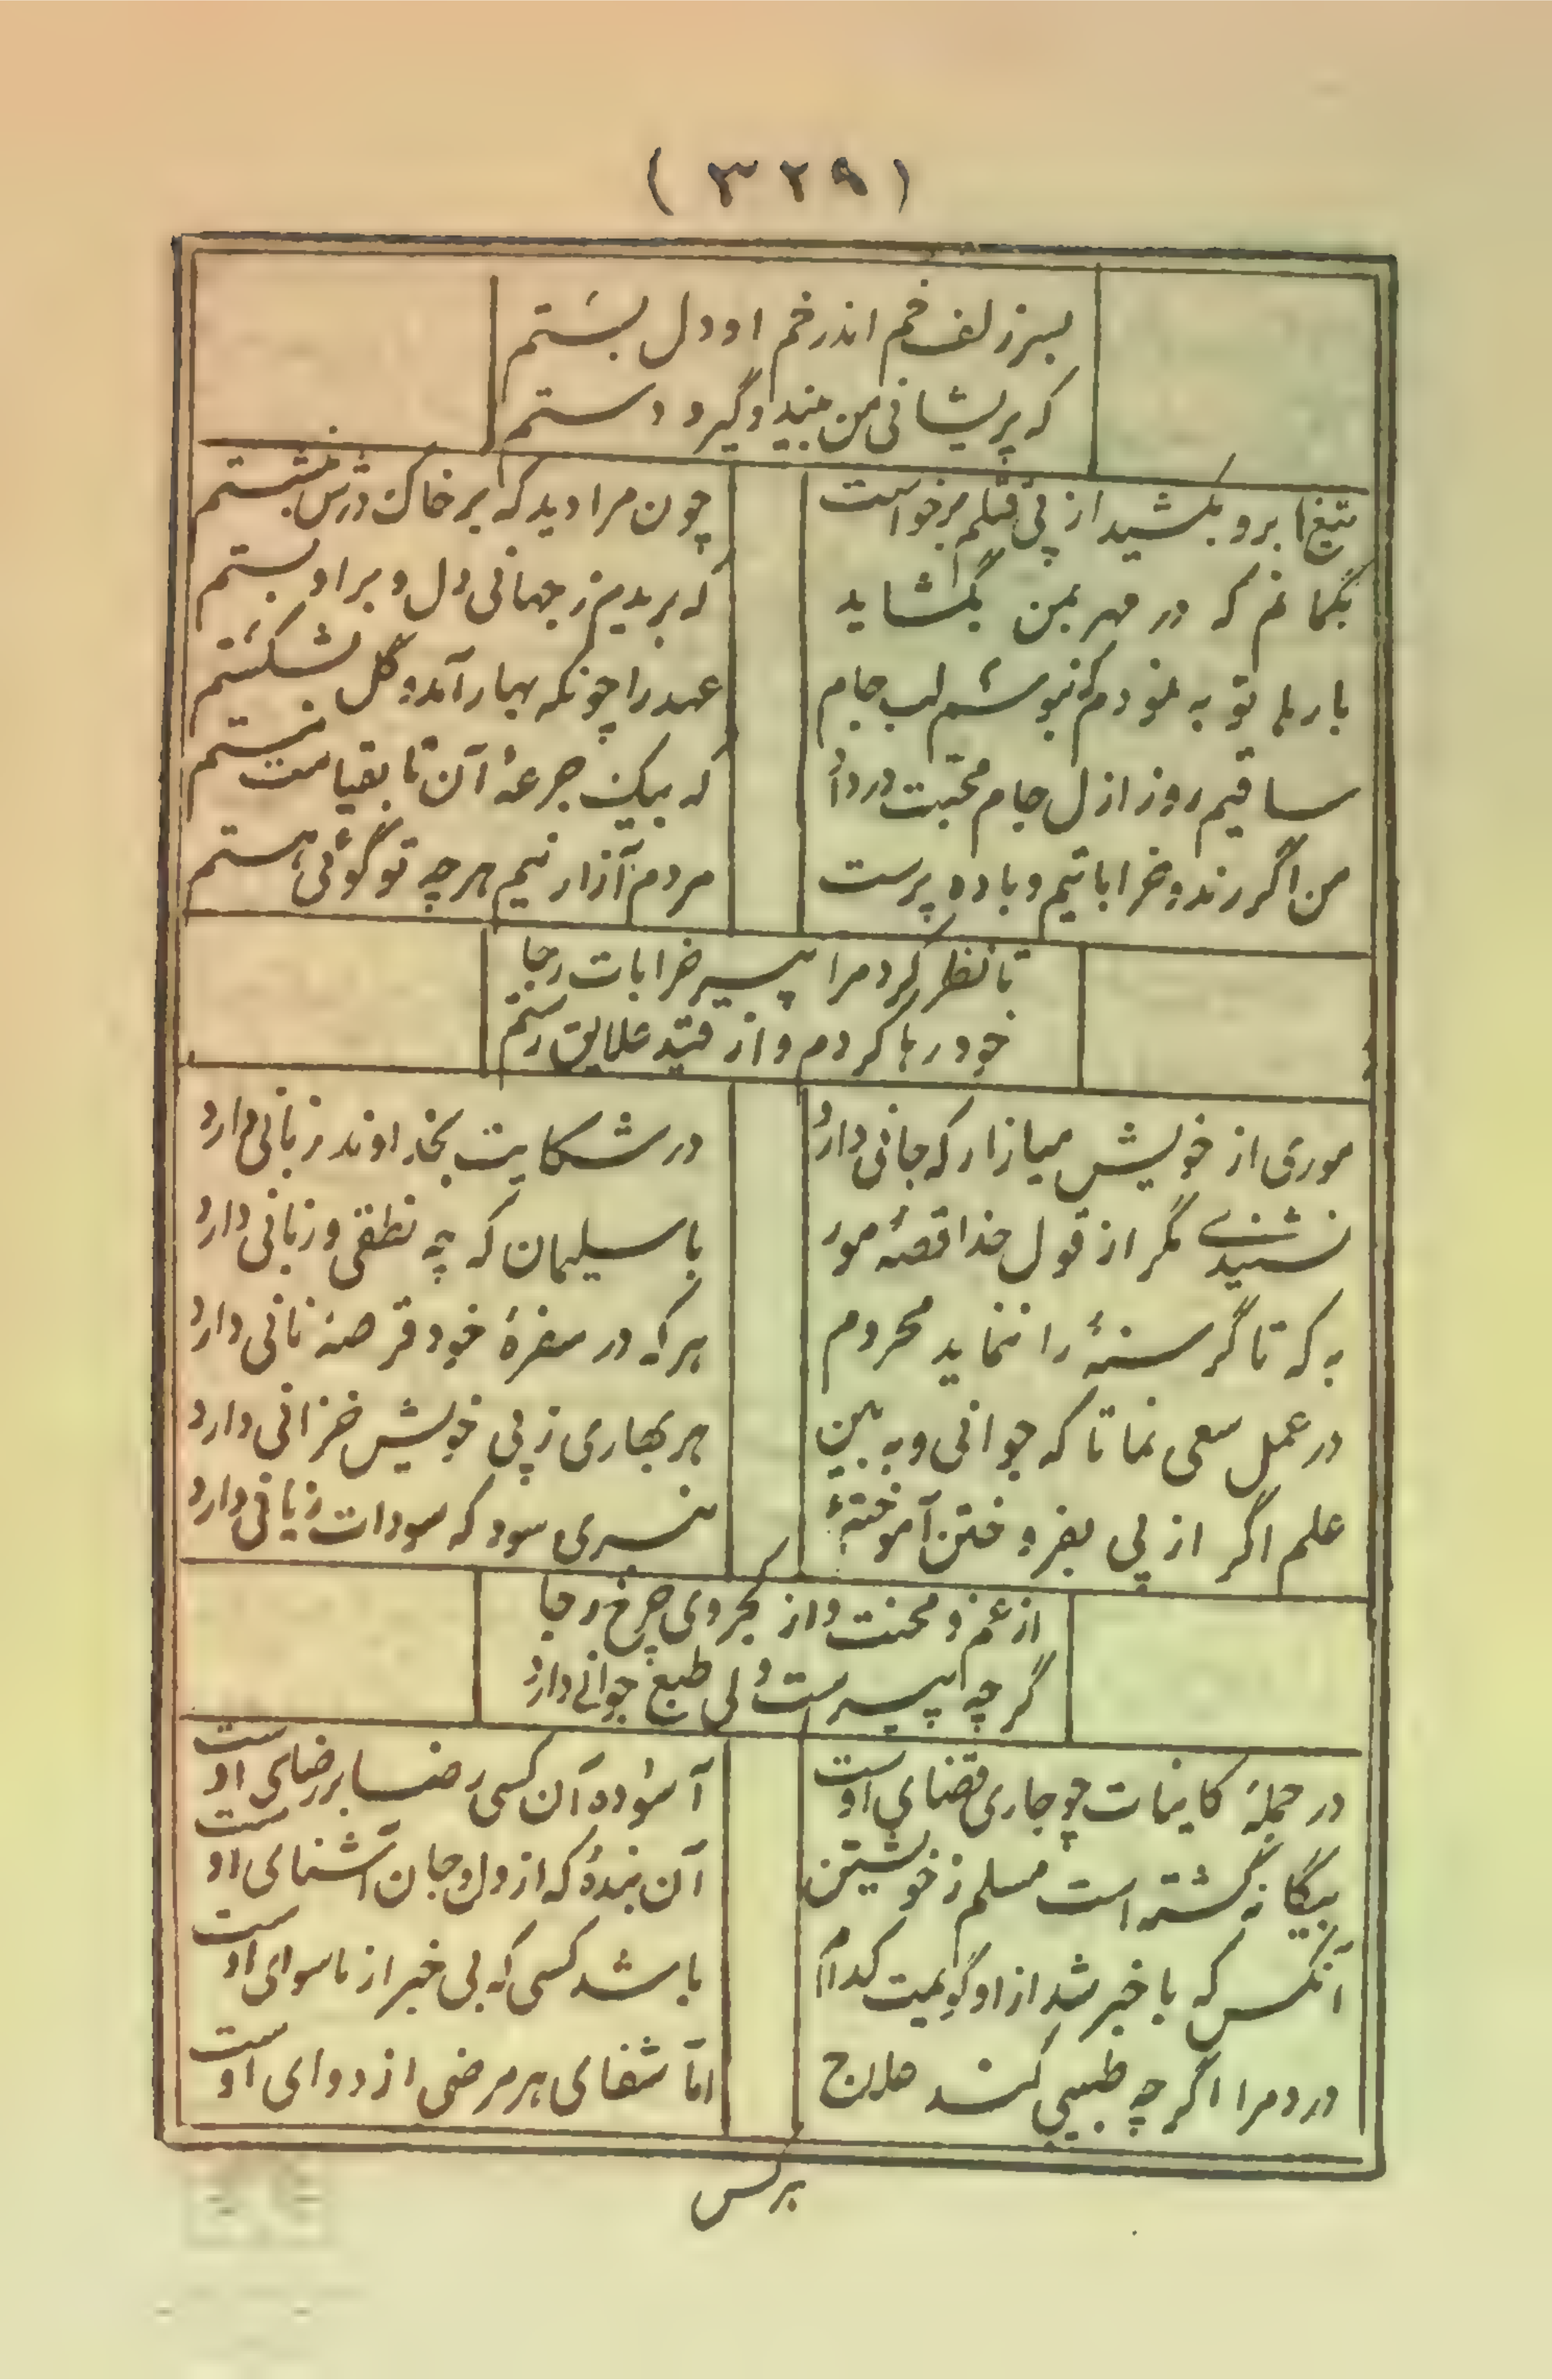 ( ۳۲۹ )
بسر زلف خم اندر خم او دل بستم
که پریشانی من بیند و گیرد دستم
تیغ ابرو بکشید از پی قتلم برخواست
چون مرا دید که بر خاک درش بنشستم
بگمانم که در مهر بمن بگشاید
که بریدم ز جهانی دل و بر او بستم
بارها توبه نمودم که ننوشم لب جام
عهد را چونکه بهار آمد و گل بشکستم
ساقیم روز ازل جام محبت در داد
که بیک جرعهٔ آن تا بقیامت مستم
من اگر رند و خراباتیم و باده پرست
مردم آزار نیم هر چه تو گوئی هستم
تا نظر کرد مرا پیر خرابات رجا
خود رها کردم و از قید علایق رستم
موری از خویش میازار که جانی دارد
در شکایت بخداوند زبانی دارد
نشنیدی مگر از قول خدا قصهٔ مور
با سلیمان که چه نطقی و زبانی دارد
به که تا گرسنهٔ را ننماید محروم
هر که در سفرهٔ خود قرصهٔ نانی دارد
در عمل سعی نما تا که جوانی و به بین
هر بهاری ز پی خویش خزانی دارد
علم اگر از پی بفروختن آموختهٔ
نبری سود که سودات زیانی دارد
از غم و محنت و از کجروی چرخ رجا
گر چه پیر است ولی طبع جوانی دارد
در جملهٔ کاینات چو جاری قضای اوست
آسوده آن کسی رضا بر رضای اوست
بیگانه گشته است مسلم ز خویشتن
آن بندهٔ که از دل و جان آشنای اوست
آنکس که با خبر شد از او گویمت کدام
باشد کسی که بی خبر از ماسوای اوست
درد مرا اگر چه طبیبی کند علاج
امّا شفای هر مرضی از دوای اوست
هرکس